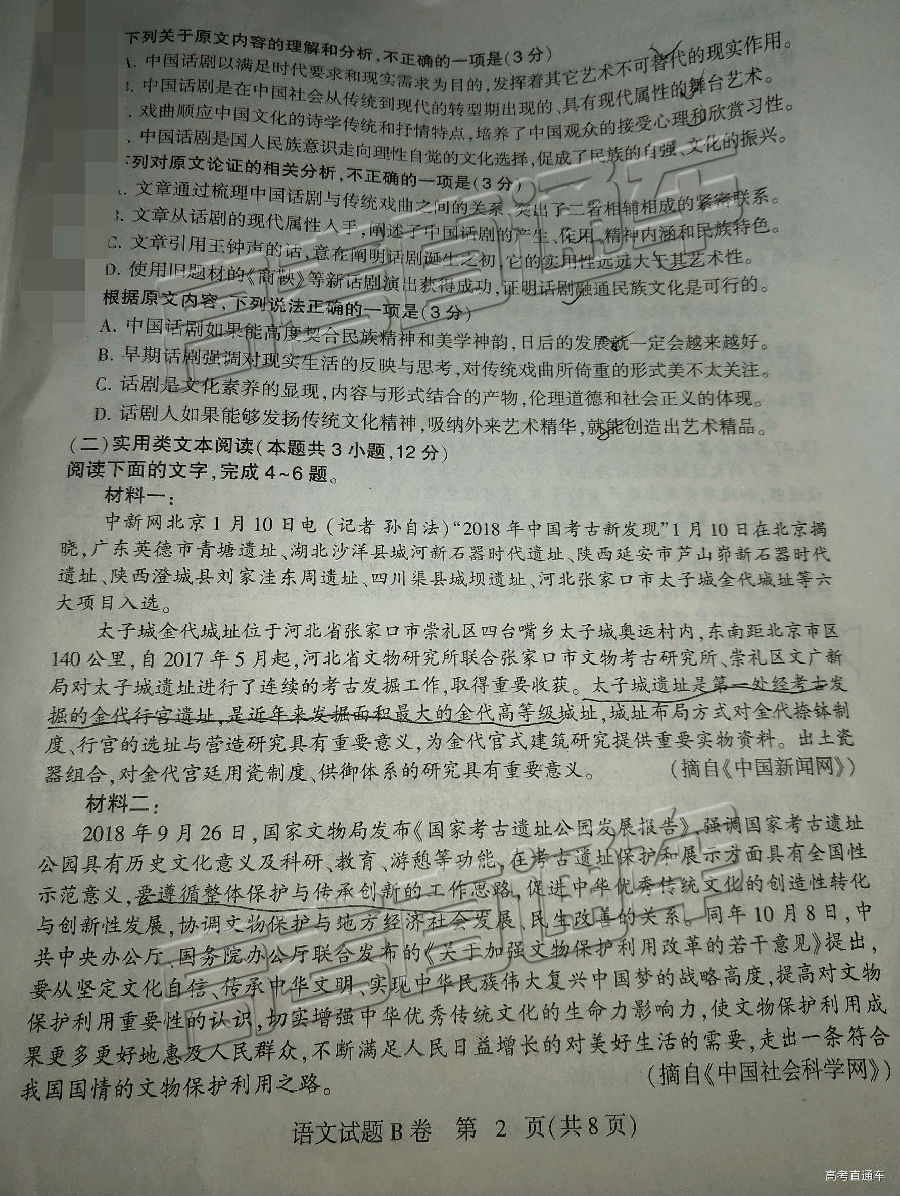 下列关于原文内容的理解和分析,不正确的一项是(3分)
. 中国话剧以满足时代要求和现实需求为目的,发挥着其它艺术不可替代的现实作用。
. 中国话剧是在中国社会从传统到现代的转型期出现的、具有现代属性的舞台艺术。
. 戏曲顺应中国文化的诗学传统和抒情特点,培养了中国观众的接受心理和欣赏习性。
. 中国话剧是国人民族意识走向理性自觉的文化选择,促成了民族的自强、文化的振兴。
下列对原文论证的相关分析,不正确的一项是(3分)
. 文章通过梳理中国话剧与传统戏曲之间的关系、突出了二者相辅相成的紧密联系。
B. 文章从话剧的现代属性入手,阐述了中国话剧的产生、作用、精神内涵和民族特色。
C. 文章引用王钟声的话,意在阐明话剧诞生之初,它的实用性远远大于其艺术性。
D. 使用旧题材的《商鞅》等新话剧演出获得成功,证明话剧融通民族文化是可行的。
根据原文内容,下列说法正确的一项是(3分)
A. 中国话剧如果能高度契合民族精神和美学神韵,日后的发展就一定会越来越好。
B. 早期话剧强调对现实生活的反映与思考,对传统戏曲所倚重的形式美不太关注。
C. 话剧是文化素养的显现,内容与形式结合的产物,伦理道德和社会正义的体现。
D. 话剧人如果能够发扬传统文化精神,吸纳外来艺术精华,就能创造出艺术精品。
(二)实用类文本阅读(本题共3小题,12分)
阅读下面的文字,完成4~6题。
材料一:
中新网北京1月10日电 (记者 孙自法)“2018年中国考古新发现”1月10日在北京揭
晓,广东英德市青塘遗址、湖北沙洋县城河新石器时代遗址、陕西延安市芦山峁新石器时代
遗址、陕西澄城县刘家洼东周遗址、四川渠县城坝遗址、河北张家口市太子城金代城址等六
大项目入选。
太子城金代城址位于河北省张家口市崇礼区四台嘴乡太子城奥运村内,东南距北京市区
140公里,自2017年5月起,河北省文物研究所联合张家口市文物考古研究所、崇礼区文广新
局对太子城遗址进行了连续的考古发掘工作,取得重要收获。太子城遗址是第一处经考古发
掘的金代行宫遗址,是近年来发掘面积最大的金代高等级城址,城址布局方式对金代捺钵制
度、行宫的选址与营造研究具有重要意义,为金代官式建筑研究提供重要实物资料。出土瓷
器组合,对金代宫廷用瓷制度、供御体系的研究具有重要意义。 (摘自《中国新闻网》)
材料二:
2018年9月26日,国家文物局发布《国家考古遗址公园发展报告》,强调国家考古遗址
公园具有历史文化意义及科研、教育、游憩等功能,在考古遗址保护和展示方面具有全国性
示范意义,要遵循整体保护与传承创新的工作思路,促进中华优秀传统文化的创造性转化
与创新性发展,协调文物保护与地方经济社会发展、民生改善的关系。同年10月8日,中
共中央办公厅、国务院办公厅联合发布的《关于加强文物保护利用改革的若干意见》提出,
要从坚定文化自信、传承中华文明、实现中华民族伟大复兴中国梦的战略高度,提高对文物
保护利用重要性的认识,切实增强中华优秀传统文化的生命力影响力,使文物保护利用成
果更多更好地惠及人民群众,不断满足人民日益增长的对美好生活的需要,走出一条符合
我国国情的文物保护利用之路。 (摘自《中国社会科学网》)
语文试题B卷 第 2 页(共8页)
高考直通车
高考直通车
高考直通车